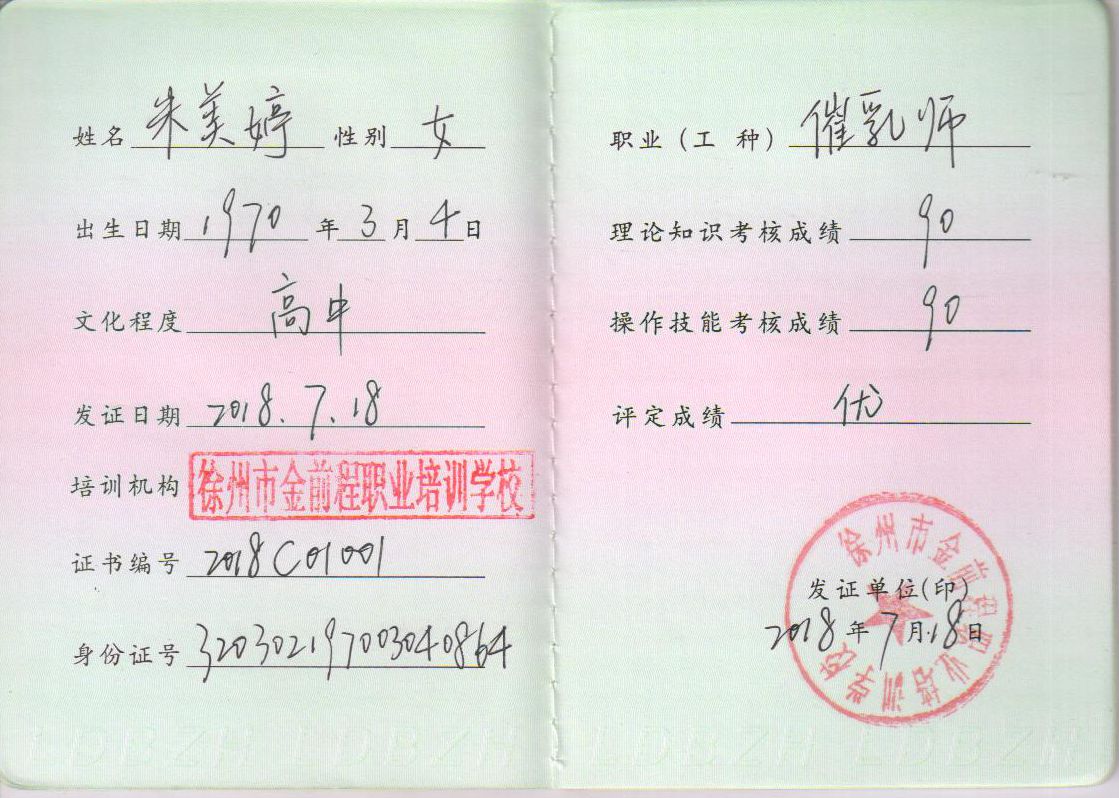 姓名 朱美婷 性别 女
出生日期 1970 年 3 月 4 日
文化程度 高中
发证日期 2018.7.18
培训机构 徐州市金前程职业培训学校
证书编号 2018C01001
身份证号 320302197003040864
职业（工 种） 催乳师
理论知识考核成绩 90
操作技能考核成绩 90
评定成绩 优
徐州市金前程职业培训学校
发证单位(印)
2018 年 7 月 18 日
LDBZH LDBZH LDBZH LDBZH